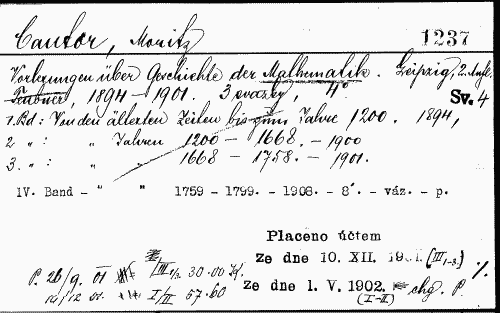 Cantor, Moritz
1237
Vorlesungen über Geschichte der Mathematik. Leipzig, 2. Aufl.
Teubner, 1894 – 1901. 3 svazky, 4° Sv. 4
1. Bd: Von den ältesten Zeiten bis zum Jahre 1200. 1894,
2 " : " " Jahren 1200 – 1668. – 1900
3. " : " " 1668 – 1758. – 1901.
IV. Band - " " 1759 - 1799. - 1908. - 8°. - váz. - p.
Placeno účtem
Ze dne 10. XII. 1901. (III 1-3.)
P. 26/9. 01 III 1/3. 30.00
Ze dne 1. V. 1902. chg. P. %
12/12 01. I/II 57.60
(I-II)